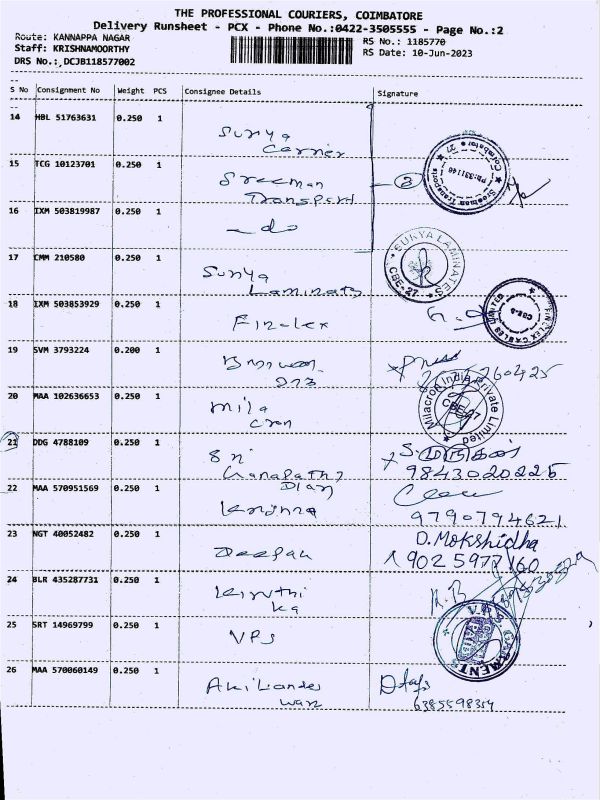 THE PROFESSIONAL COURIERS, COIMBATORE
Delivery Runsheet - PCX - Phone No.:0422-3505555 - Page No.:2
Route: KANNAPPA NAGAR
Staff: KRISHNAMOORTHY
DRS No.: DCJB118577002
RS No.: 1185770
RS Date: 10-Jun-2023
S No Consignment No Weight PCS Consignee Details Signature
14 HBL 51763631 0.250 1
Surya
Carrier
15 TCG 10123701 0.250 1
Sreeman
Transport
2
Sreeman Transports
Coimbatore - 27
Ph:331146
16 IXM 503819987 0.250 1
- do
17 CMM 210580 0.250 1
Surya
Laminats
SURYA LAMINATES
CBE-27
18 IXM 503853929 0.250 1
Finolex
FINOLEX CABLES LIMITED
CBE-2
19 SVM 3793224 0.200 1
20 MAA 102636653 0.250 1
Mila
cron
Milacron India Private Limited
CBE-27
21 DDG 4788109 0.250 1
Sri
Ganapathy
9843020225
22 MAA 570951569 0.250 1
Krishna
9790794621
23 NGT 40052482 0.250 1
Deepan
D.Mokshidha
9025977160
24 BLR 435287731 0.250 1
Kiruthi
ka
K.B
25 SRT 14969799 0.250 1
VPS
V.P.S. GARMENTS
26 MAA 570060149 0.250 1
Akilandes
wari
6385598314